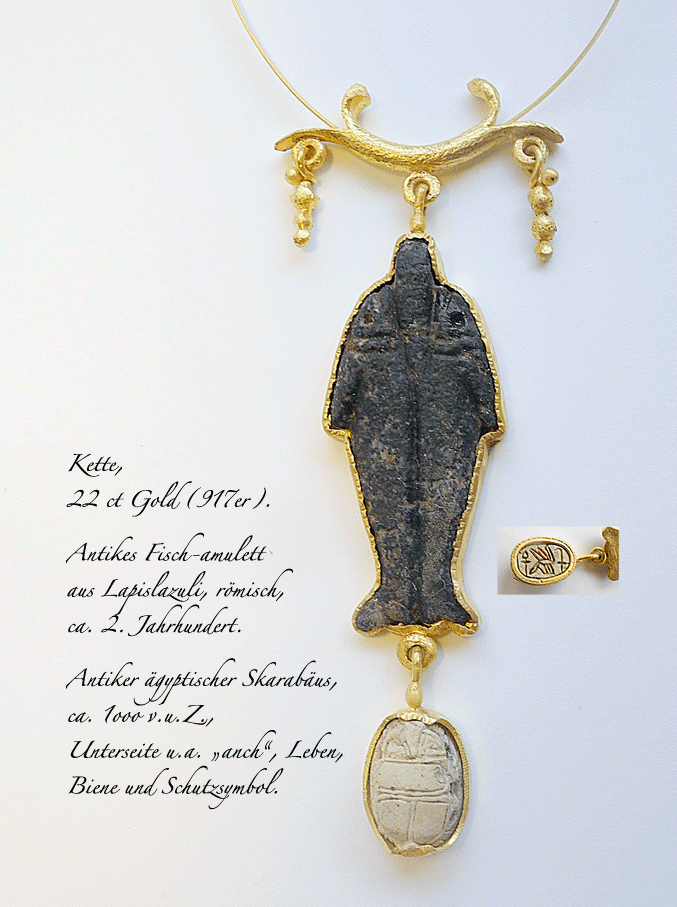 Kette,
22 ct Gold (917er).
Antikes Fisch-amulett
aus Lapislazuli, römisch,
ca. 2. Jahrhundert.
Antiker ägyptischer Skarabäus,
ca. 1000 v.u.Z.,
Unterseite u.a. „anch“, Leben,
Biene und Schutzsymbol.